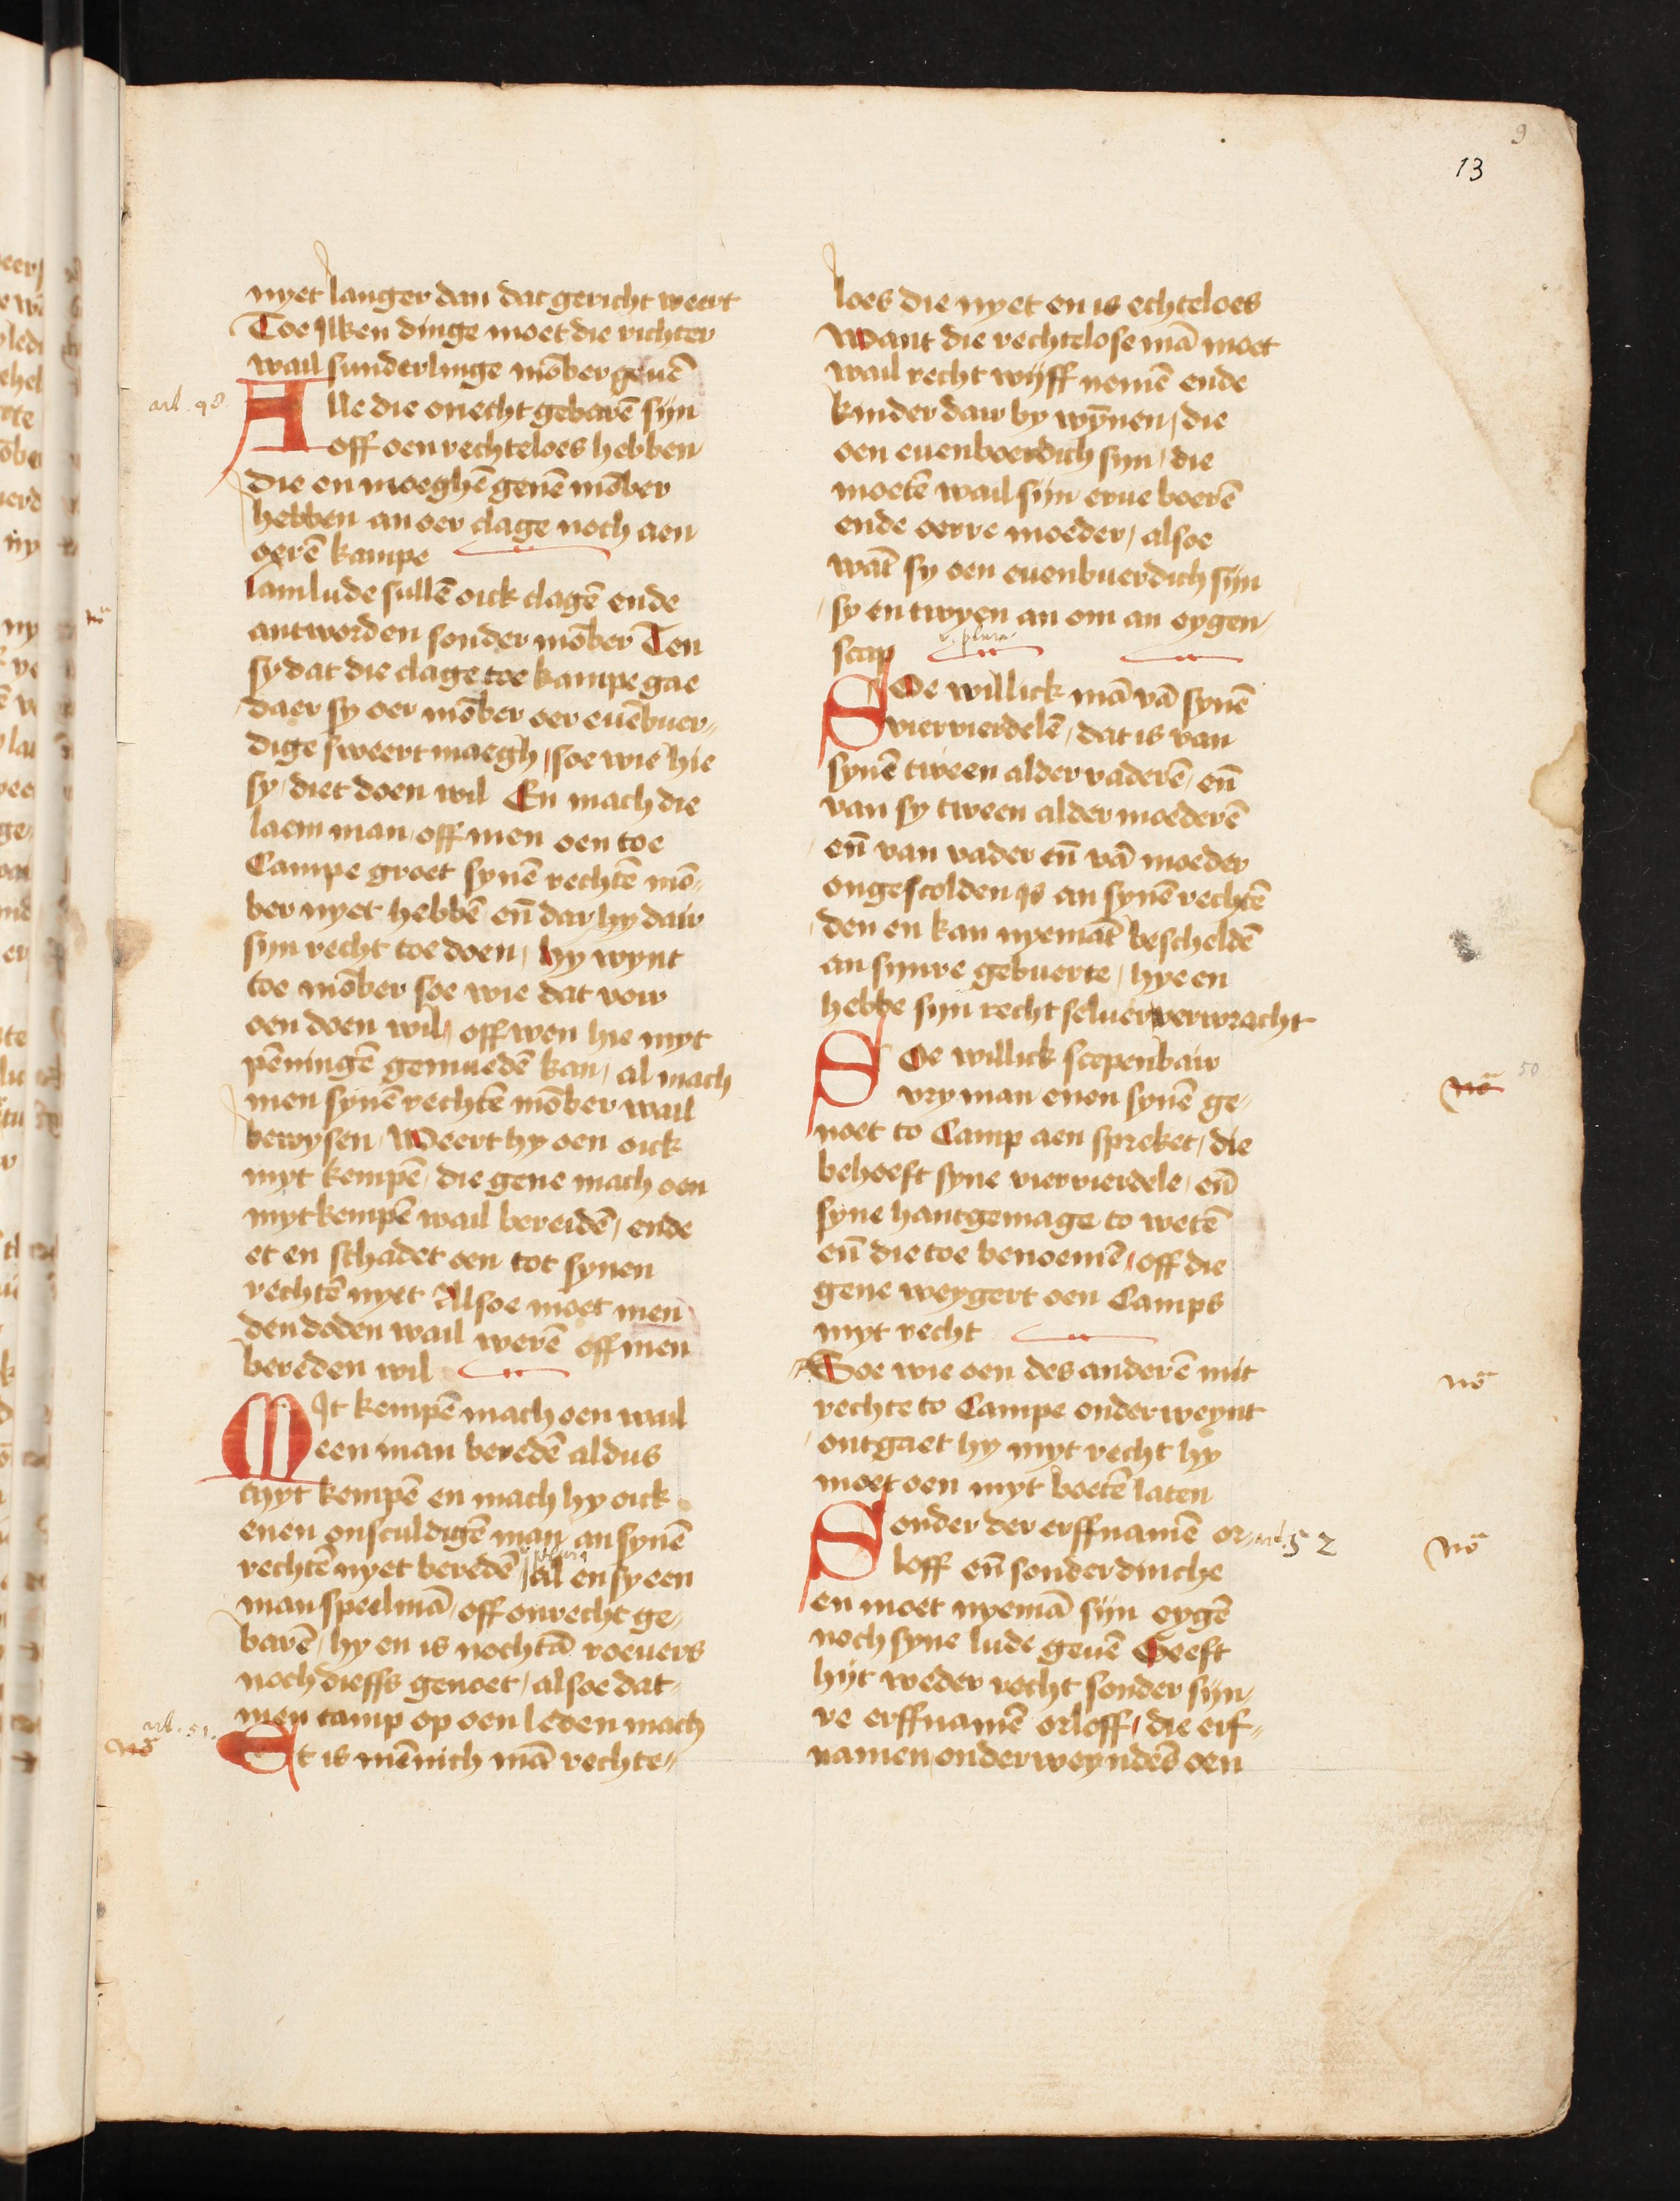 9
13
nyet langer dan dat gericht weert
Toe ilken dinge moet die richter
wail sunderlinge mōber geuē
art. 48
Alle die onecht gebarē sijn
off oen rechteloes hebben
die en moeghē genē mōber
hebben an oer clage noch aen
oerē kampe
lamlude sullē oick clagē ende
antworden sonder mōber Ten
sy dat die clage toe kampe gae
daer sy oer mōber oer euēbuer-
dige sweert maegh, soe wie hie
sy, diet doen wil En mach die
laem man, off men oen toe
Campe groet synē rechtē mō-
ber nyet hebbē, en̄ dar hy dair
sijn recht toe doen, hy wynt
toe mōber soe wie dat voir
oen doen wil, off wen hie myt
pēningē gemuedē kan, al mach
men synē rechtē mōber wail
bewysen, Weert hy oen oick
myt kempē, die gene mach oen
myt kempē wail bereidē, ende
et en schadet oen tot synen
rechtē nyet Alsoe moet men
den doden wail werē off men
bereden wil
Mit kempē mach oen wail
een man beredē aldus
myt kempē en mach hy oick
enen onsculdigē man an synē
rechtē nyet beredē, al en sy een
man speelmā, off onrecht ge-
barē, hy en is nochtā roeuers
noch dieffs genoet, alsoe dat
men camp op oen leden mach
art. 51.
nō
Et is mēnich mā rechte-
loes die nyet en is echteloes
Want die rechtelose mā moet
wail recht wijff nemē ende
kinder dair by wȳnen, die
oen euenboerdich sijn, die
moetē wail sijn erue boerē
ende oerre moeder, alsoe
wāt sy oen euenbuerdich sijn
sy en twyen an om an eygen-
scap
Soe willick mā vā synē
viervierdelē, dat is van
synē tween alder vaderē, en̄
van sy tween alder moederē
en̄ van vader en̄ vā moeder
ongescolden is an synē rechtē
den en kan nyemāt bescheldē
an synre gebuerte, hye en
hebbe sijn recht seluer verwracht
Soe willick scepenbair
vry man enen synē ge-
noet to Camp aen spreket, die
behoeft syne viervierdele, en̄
syne hantgemage to wetē
en̄ die toe benoemē, off die
gene weygert oen Camps
myt recht
50
nō
Soe wie oen des anderē mit
rechte to Campe onderweynt
ontgaet hy myt recht hy
moet oen myt boetē laten
nō
Sonder der erffnamē or-
loff en̄ sonder dinche
en moet nyemā sijn eygē
noch syne lude geuē Geeft
hijt weder recht sonder sijn-
re erffnamē orloff, die erf-
namen onderweyndēs oen
art. 52
nō